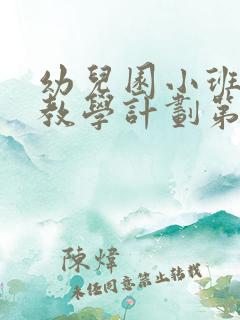 幼兒園小班
教學計劃第
陳煒
未任同意禁止轉載